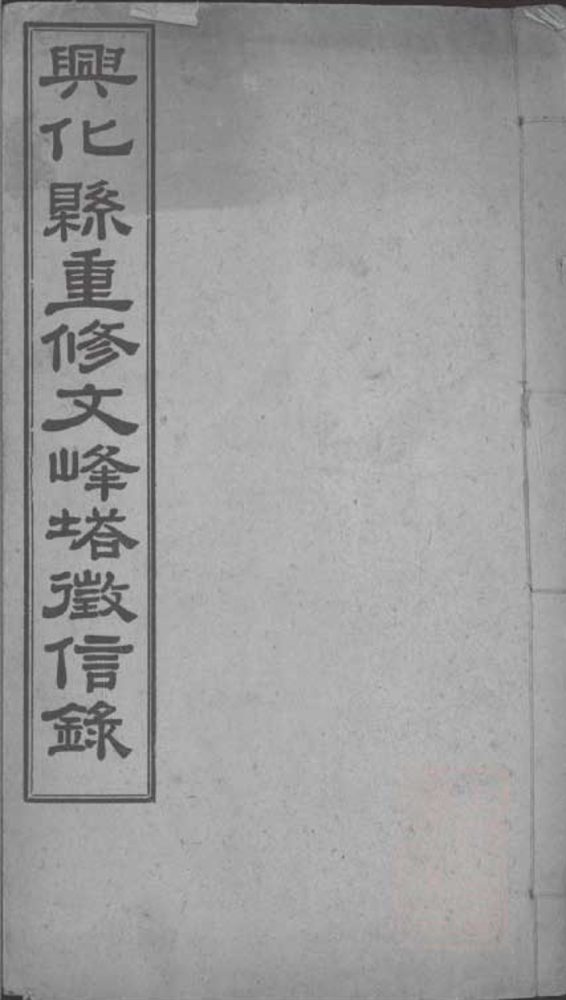 興化縣重修文峰塔徵信錄